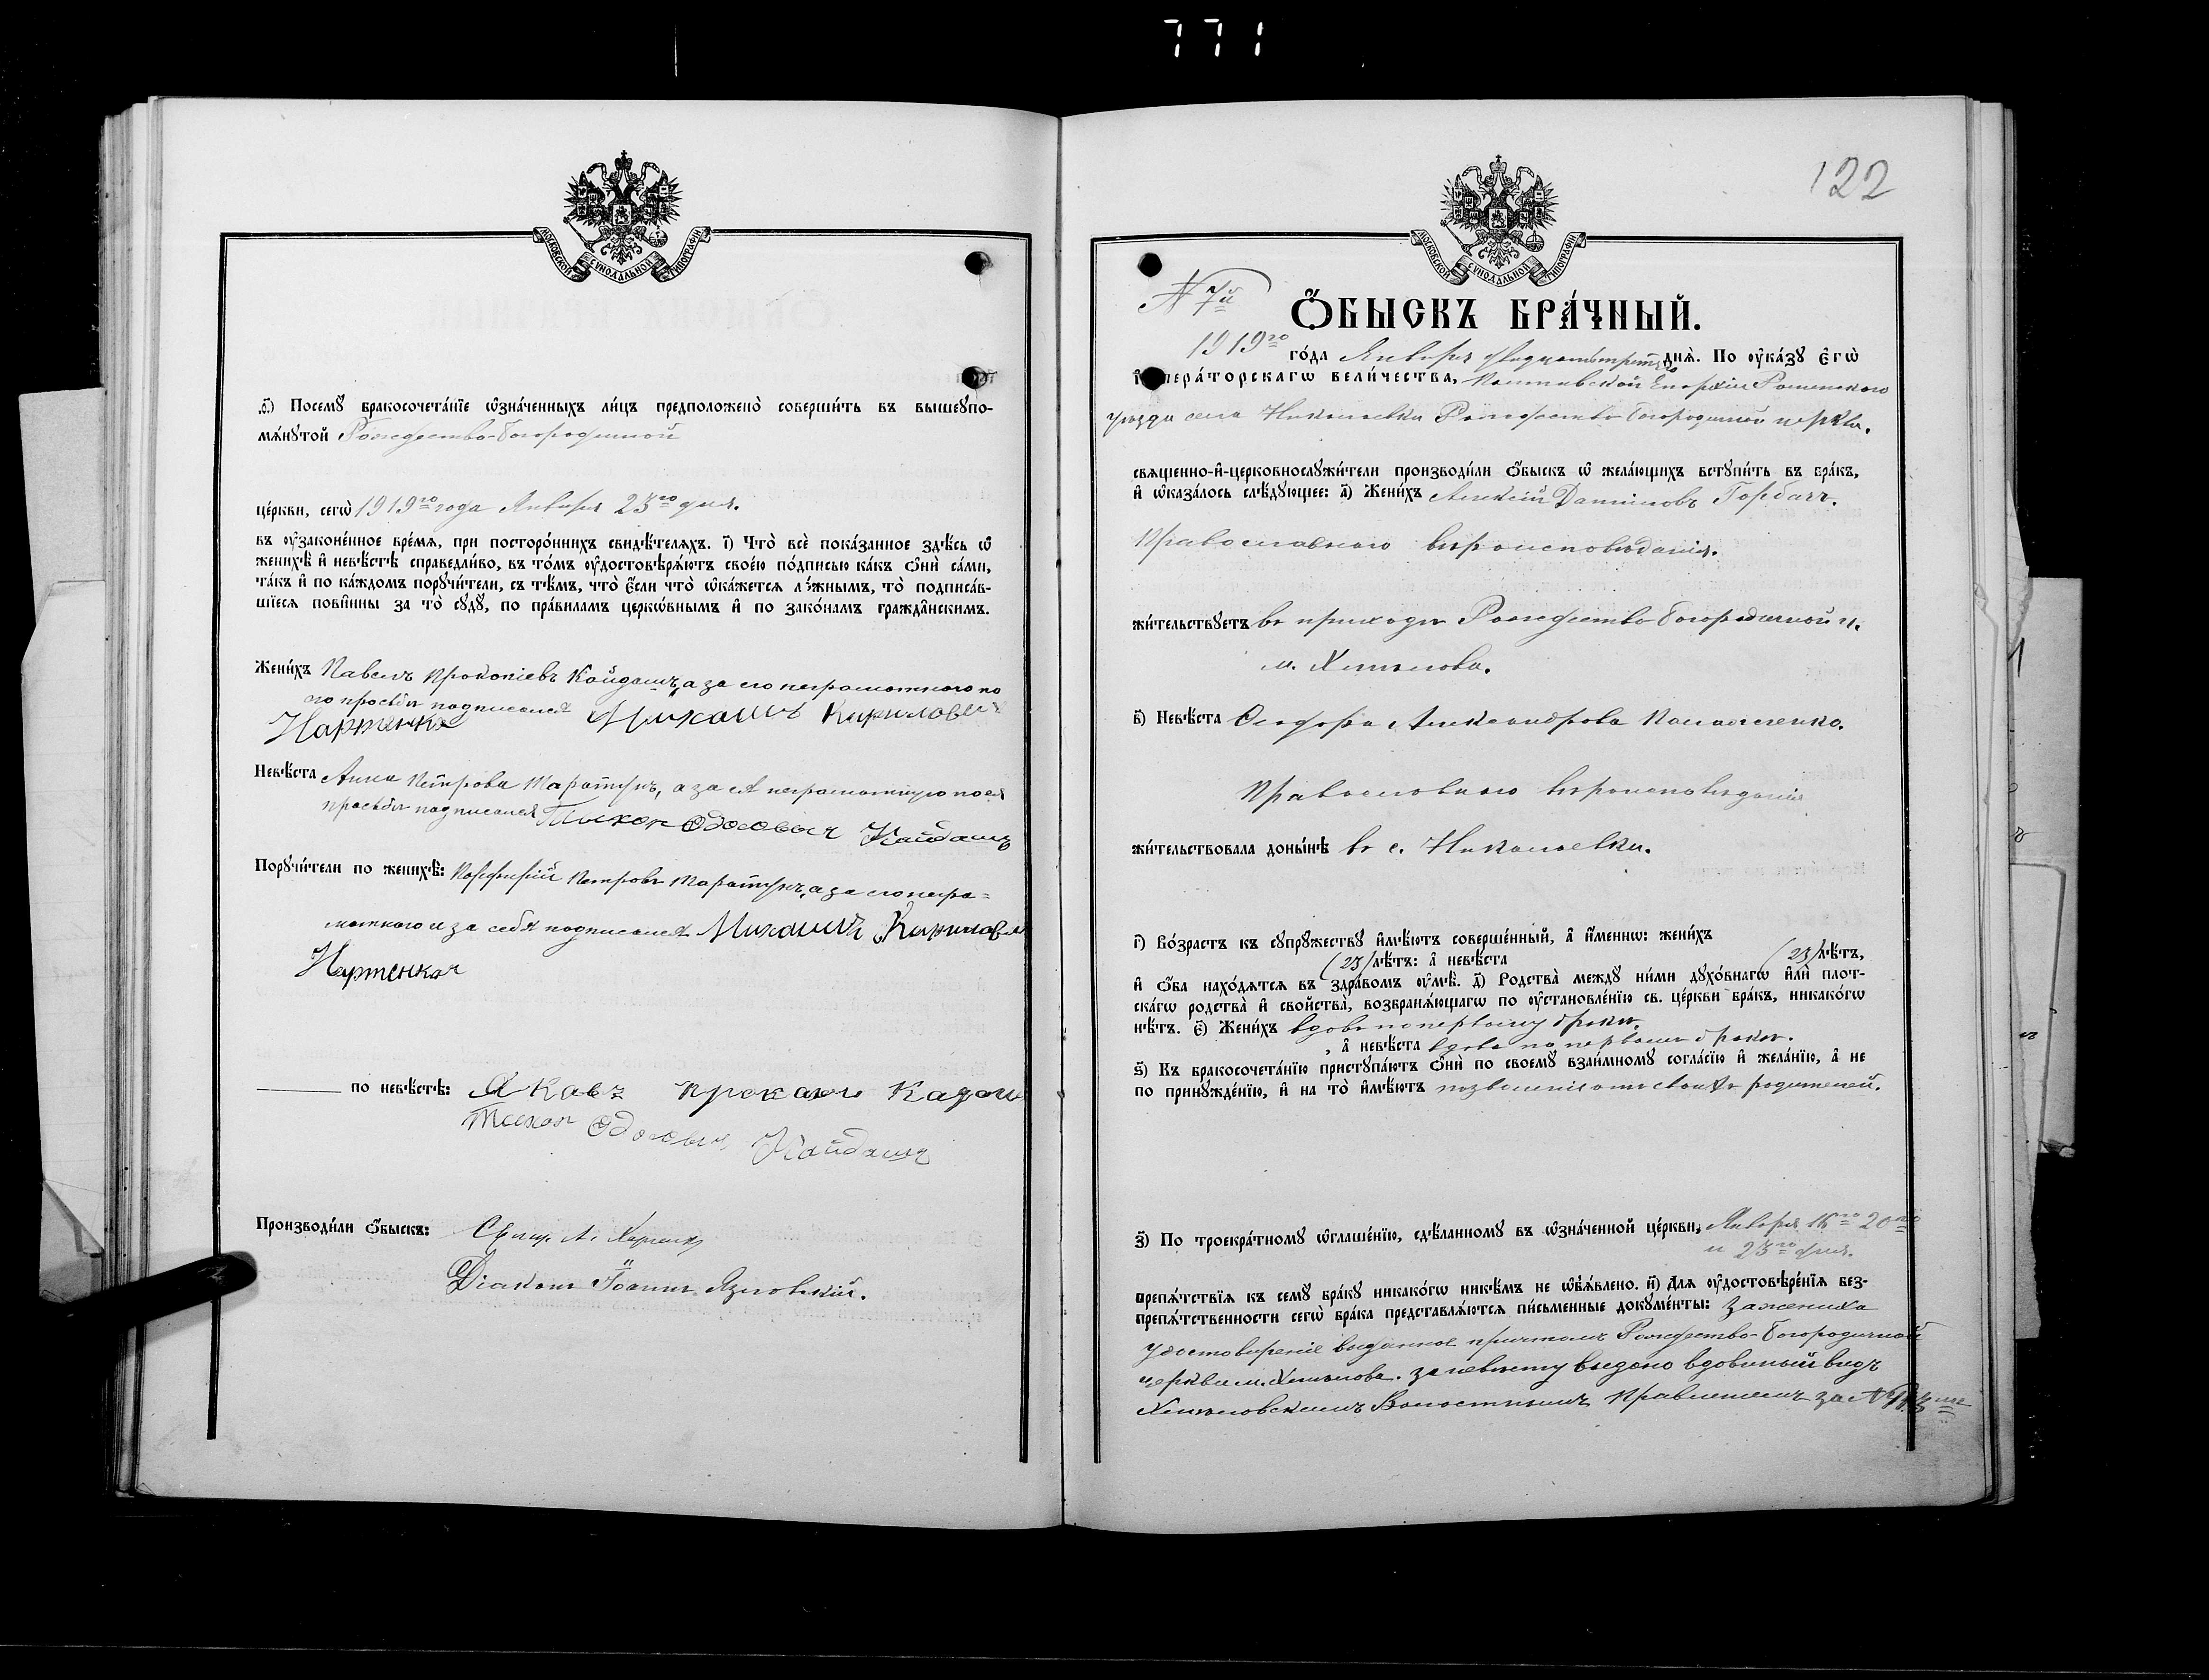 771
МОСКОВСКОЙ СУНОДАЛЬНОЙ ТИПОГРАФІИ
ѳ҃) Посемꙋ̀ бракосочета́нїе ѡ҆зна́ченныхъ ли́цъ предположено̀ соверши́ть въ вышеꙋпо-
мѧ́нꙋтой Рождество-Богородичной
це́ркви, сегѡ̀ 1919го года Января 23го дня.
въ ᲂу҆законе́нное вре́мѧ, при посторо́ннихъ свидѣ́телѧхъ. і҃) Что̀ всѐ пока́занное здѣ́сь ѡ҆
женихѣ̀ и҆ невѣ́стѣ справедли́во, въ то́мъ ᲂу҆достовѣрѧ́ютъ свое́ю по́дписью ка́къ ѻ҆нѝ са́ми,
та́къ и҆ по ка́ждомъ порꙋчи́тели, съ тѣ́мъ, что̀ є҆́сли что̀ ѡ҆ка́жетсѧ ло́жнымъ, то̀ подписа́в-
шїесѧ пови́нны за то̀ сꙋдꙋ̀, по пра́виламъ церко́внымъ и҆ по зако́намъ гражда́нскимъ.
Жени́хъ Павелъ Прокопіевъ Кайдашъ, а за его неграмотнаго по
его просьбѣ подписался Михаилъ Кирилович
Нартенко
Невѣ́ста Анна Петрова Таратунъ, а за ея неграмотную по ея
просьбѣ подписался Тыхон Кайдашъ
Порꙋчи́тели по женихѣ̀: Порфирій Петровъ Таратунъ, а за его негра=
мотнаго и за себя подписался Михаилъ Кирилович
Нартенко
по невѣ́стѣ: Яковъ
Тихон Кайдашъ
Производи́ли ѻ҆́быскъ: Свящ. А.
Діаконъ Іоаннъ Язловскій.
122
МОСКОВСКОЙ СУНОДАЛЬНОЙ ТИПОГРАФІИ
№ 7й
Ѻ҆́БЫСКЪ БРА́ЧНЫЙ.
1919го го́да Января двадцать третьяго днѧ̀. По ᲂу҆ка́зꙋ Є҆гѡ̀
И҆мпера́торскагѡ вели́чества, Полтавской Епархіи Роменскаго
уѣзда села Николаевки Рождество-Богородичной церкви.
свѧще́нно-и҆-церковнослꙋжи́тели производи́ли ѻ҆́быскъ ѡ҆ жела́ющихъ встꙋпи́ть въ бра́къ,
и҆ ѡ҆каза́лось слѣ́дꙋющее: а҃) Жени́хъ Алексій Данииловъ Горбачъ.
Православнаго вѣроисповѣданія.
жи́тельствꙋетъ въ приходѣ Рождество-Богородичной ц.
м. Хмѣлова.
в҃) Невѣ́ста Феодора Александрова
Православнаго вѣроисповѣданія
жи́тельствовала доны́нѣ въ с. Николаевки.
г҃) Во́зрастъ къ сꙋпрꙋ́жествꙋ и҆мѣ́ютъ соверше́нный, а҆ и҆́менно: жени́хъ
(25) лѣ́тъ: а҆ невѣ́ста (23) лѣ́тъ,
и҆ ѻ҆́ба нахо́дѧтсѧ въ здра́вомъ ᲂу҆мѣ̀. д҃) Родства̀ междꙋ̀ ни́ми дꙋхо́внагѡ и҆лѝ пло́т-
скагѡ родства̀ и҆ свойства̀, возбранѧ́ющагѡ по ᲂу҆становле́нїю св. це́ркви бра́къ, никако́гѡ
нѣ́тъ. є҃) Жени́хъ вдовъ по первому бракѣ,
а҆ невѣ́ста вдова по первомъ бракѣ.
ѕ҃) Къ бракосочета́нїю пристꙋпа́ютъ ѻ҆нѝ по своемꙋ̀ взаи́мномꙋ согла́сїю и҆ жела́нїю, а҆ не
по принꙋжде́нїю, и҆ на то̀ и҆мѣ́ютъ позволеніе отъ своихъ родителей.
з҃) По троекра́тномꙋ ѡ҆глаше́нїю, сдѣ́ланномꙋ въ ѡ҆зна́ченной це́ркви, Января 16го 20го
и 23го дня.
препѧ́тствїѧ къ семꙋ̀ бра́кꙋ никако́гѡ никѣ́мъ не ѡ҆б̾ѧ́влено. и҃) Длѧ ᲂу҆достовѣре́нїѧ без-
препѧ́тственности сегѡ̀ бра́ка представлѧ́ютсѧ пи́сьменные докꙋме́нты: за жениха
удостовѣреніе выданное причтомъ Рождество-Богородичной
церкви м. Хмѣлова. за невѣсту выдано вдовиный видъ
Хмѣловскимъ Волостнымъ Правленіемъ за №